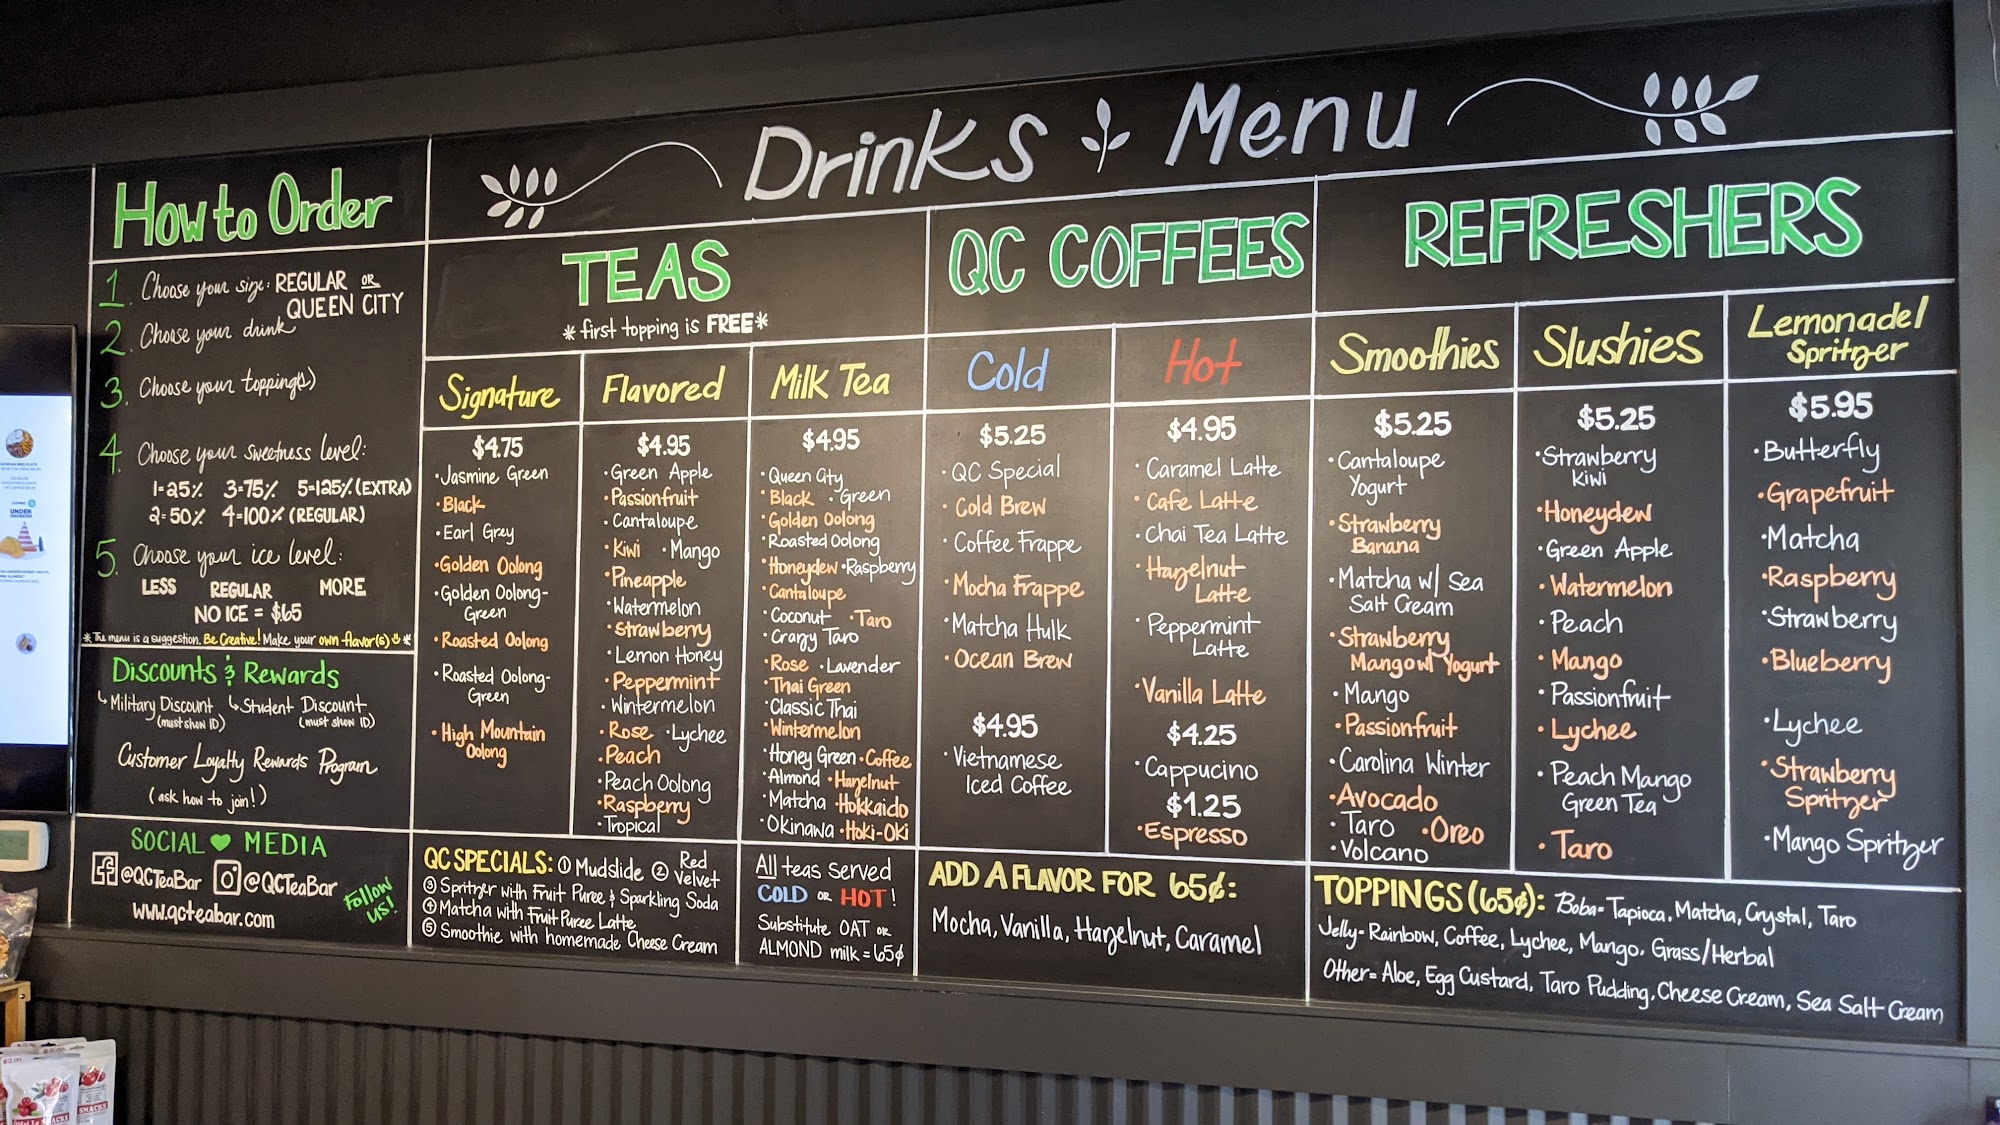 Drinks Menu
How to Order
1. Choose your size: REGULAR OR
QUEEN CITY
2. Choose your drink
3. Choose your topping(s)
4. Choose your sweetness level:
1=25% 3=75% 5=125% (EXTRA)
2=50% 4=100% (REGULAR)
5. Choose your ice level:
LESS REGULAR MORE
NO ICE = $.65
*The menu is a suggestion. Be Creative! Make your own flavor(s)*
Discounts & Rewards
Military Discount
(must show ID)
Student Discount
(must show ID)
Customer Loyalty Rewards Program
(ask how to join!)
SOCIAL MEDIA
@QCTeaBar @QCTeaBar
www.qcteabar.com
Follow
us!
TEAS
*first topping is FREE*
Signature
$4.75
·Jasmine Green
·Black
·Earl Grey
·Golden Oolong
·Golden Oolong-
Green
·Roasted Oolong
·Roasted Oolong-
Green
·High Mountain
Oolong
Flavored
$4.95
·Green Apple
·Passionfruit
·Cantaloupe
·Kiwi ·Mango
·Pineapple
·Watermelon
·Strawberry
·Lemon Honey
·Peppermint
·Wintermelon
·Rose ·Lychee
·Peach
·Peach Oolong
·Raspberry
·Tropical
Milk Tea
$4.95
·Queen City
·Black ·Green
·Golden Oolong
·Roasted Oolong
·Honeydew ·Raspberry
·Cantaloupe
·Coconut ·Taro
·Crazy Taro
·Rose ·Lavender
·Thai Green
·Classic Thai
·Wintermelon
·Honey Green ·Coffee
·Almond ·Hazelnut
·Matcha ·Hokkaido
·Okinawa ·Hoki-Oki
QC SPECIALS: ① Mudslide ② Red
Velvet
③ Spritzer with Fruit Puree & Sparkling Soda
④ Matcha with Fruit Puree Latte
⑤ Smoothie with homemade Cheese Cream
All teas served
COLD OR HOT!
Substitute OAT or
ALMOND milk = 65¢
QC COFFEES
Cold
$5.25
·QC Special
·Cold Brew
·Coffee Frappe
·Mocha Frappe
·Matcha Hulk
·Ocean Brew
$4.95
·Vietnamese
Iced Coffee
Hot
$4.95
·Caramel Latte
·Cafe Latte
·Chai Tea Latte
·Hazelnut
Latte
·Peppermint
Latte
·Vanilla Latte
$4.25
·Cappucino
$1.25
·Espresso
ADD A FLAVOR FOR 65¢:
Mocha, Vanilla, Hazelnut, Caramel
REFRESHERS
Smoothies
$5.25
·Cantaloupe
Yogurt
·Strawberry
Banana
·Matcha w/ Sea
Salt Cream
·Strawberry
Mango w/ Yogurt
·Mango
·Passionfruit
·Carolina Winter
·Avocado
·Taro ·Oreo
·Volcano
Slushies
$5.25
·Strawberry
Kiwi
·Honeydew
·Green Apple
·Watermelon
·Peach
·Mango
·Passionfruit
·Lychee
·Peach Mango
Green Tea
·Taro
Lemonade|
Spritzer
$5.95
·Butterfly
·Grapefruit
·Matcha
·Raspberry
·Strawberry
·Blueberry
·Lychee
·Strawberry
Spritzer
·Mango Spritzer
TOPPINGS (65¢): Boba= Tapioca, Matcha, Crystal, Taro
Jelly- Rainbow, Coffee, Lychee, Mango, Grass/Herbal
Other= Aloe, Egg Custard, Taro Pudding, Cheese Cream, Sea Salt Cream
UNDER
SNACKS